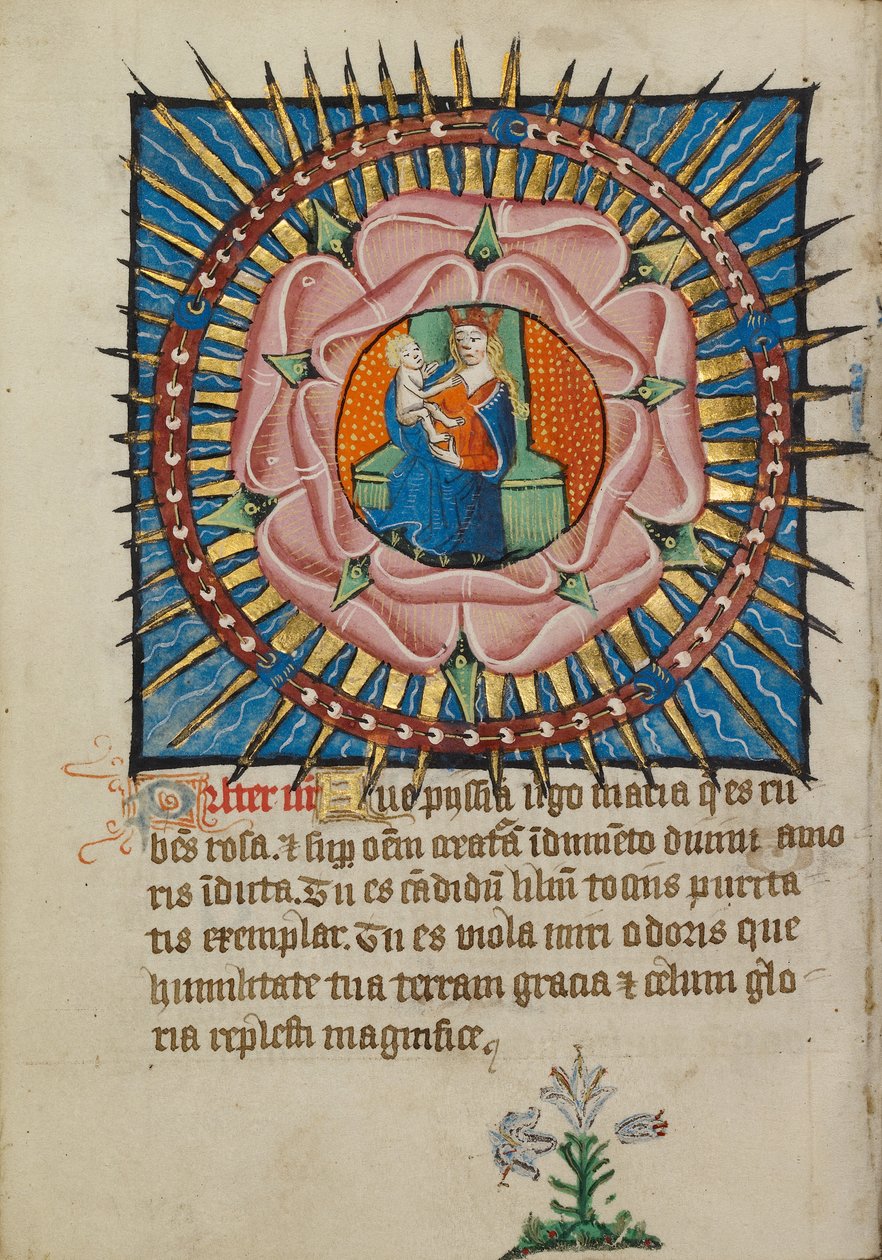 Aue pyssīa v̄go maria q̄ es ru
bēs rosa. ⁊ sup oēm creatāᵃ īdumēto diuini amo
ris īduta. Tu es cādidū liliū tocius purita
tis exemplar. Tu es viola miri odoris que
humilitate tua terram gracia ⁊ celum glo
ria replesti magnifice